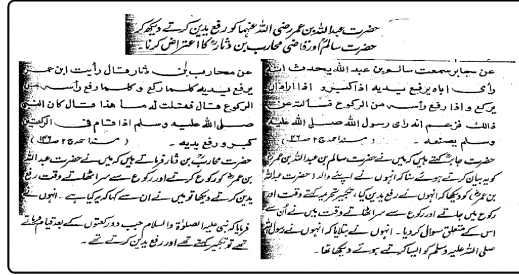 حضرت عبداللہ بن عمر رضی اللہ عنہما کو رفع یدین کرتے دیکھ کر
حضرت سالمؒ اور قاضی محارب بن دثارؒ کا اعتراض کرنا۔
عن جابر سمعت سالم بن عبد الله يحدث انه
رأى اباه يرفع يديه اذا كبر و اذا اراد ان
يركع و اذا رفع رأسه من الركوع فسألته عن
ذالك فزعم انه رأى رسول الله صلى الله عليه
وسلم يصنعه۔ (مسند احمد ج ۲ ص
حضرت جابر کہتے ہیں کہ میں نے حضرت سالم بن عبداللہ بن عمر
کو یہ بیان کرتے ہوئے سنا کہ انہوں نے اپنے والد (حضرت عبداللہ
بن عمرؓ) کو دیکھا کہ انہوں نے رفع یدین کیا، تکبیر تحریمہ کہتے وقت اور
رکوع میں جاتے اور رکوع سے سر اٹھاتے وقت میں نے اُن سے
اس کے متعلق سوال کر دیا۔ انہوں نے بتلایا کہ انہوں نے رسول اللہ
صلی اللہ علیہ وسلم کو ایسا کرتے ہوئے دیکھا تھا۔
عن محارب بن دثار قال رأيت ابن عمر
يرفع يديه كلما ركع و كلما رفع رأسه من
الركوع قال فقلت له ما هذا قال كان النبي
صلى الله عليه وسلم اذا قام في الركعتين
كبر و رفع يديه۔ (مسند احمد ج ۲ ص
حضرت محارب بن دثار فرماتے ہیں کہ میں نے حضرت عبداللہ
بن عمرؓ کو رکوع کرتے اور رکوع سے سر اٹھاتے وقت رفع
کرتے دیکھا تو میں نے ان سے کہا کہ یہ کیا ہے۔ انہوں نے
فرمایا کہ نبی علیہ الصلوٰۃ والسلام جب دو رکعتوں کے بعد قیام فرماتے
تھے تو تکبیر کہتے تھے اور رفع یدین کرتے تھے۔